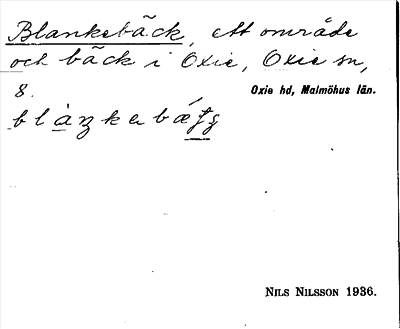 Blankebäck, ett område
och bäck i Oxie, Oxie sn,
8. Oxie hd, Malmöhus län.
NILS NILSSON 1936.